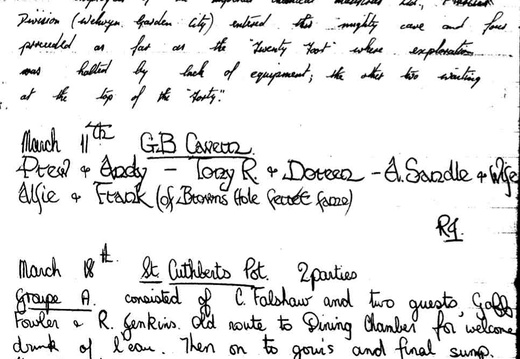 Division (Welwyn Garden City) entered this mighty cave and four
proceeded as far as the "Twenty Foot" where exploration
was halted by lack of equipment; the other two waiting
at the top of the "Forty".
March 11th G.B Cavern.
Drew & Andy – Tony R. & Doreen – A. Sandle & Wife
Alfie & Frank (of Browns Hole ferret fame)
RJ.
March 18th St. Cuthberts Pot. 2 parties
Groupe A. consisted of C. Falshaw and two guests,
Fowler & R. Jenkins. Old route to Dining Chamber for welcome
drink of l'eau. Then on to gour's and final sump.